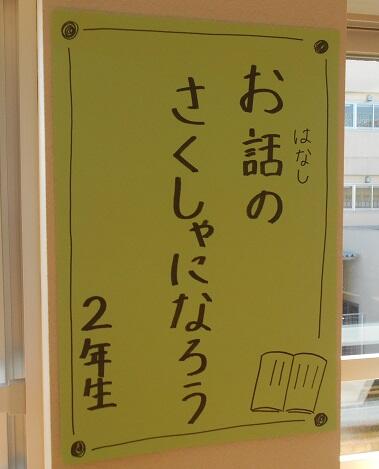 お話の
はなし
さくしゃになろう
2年生